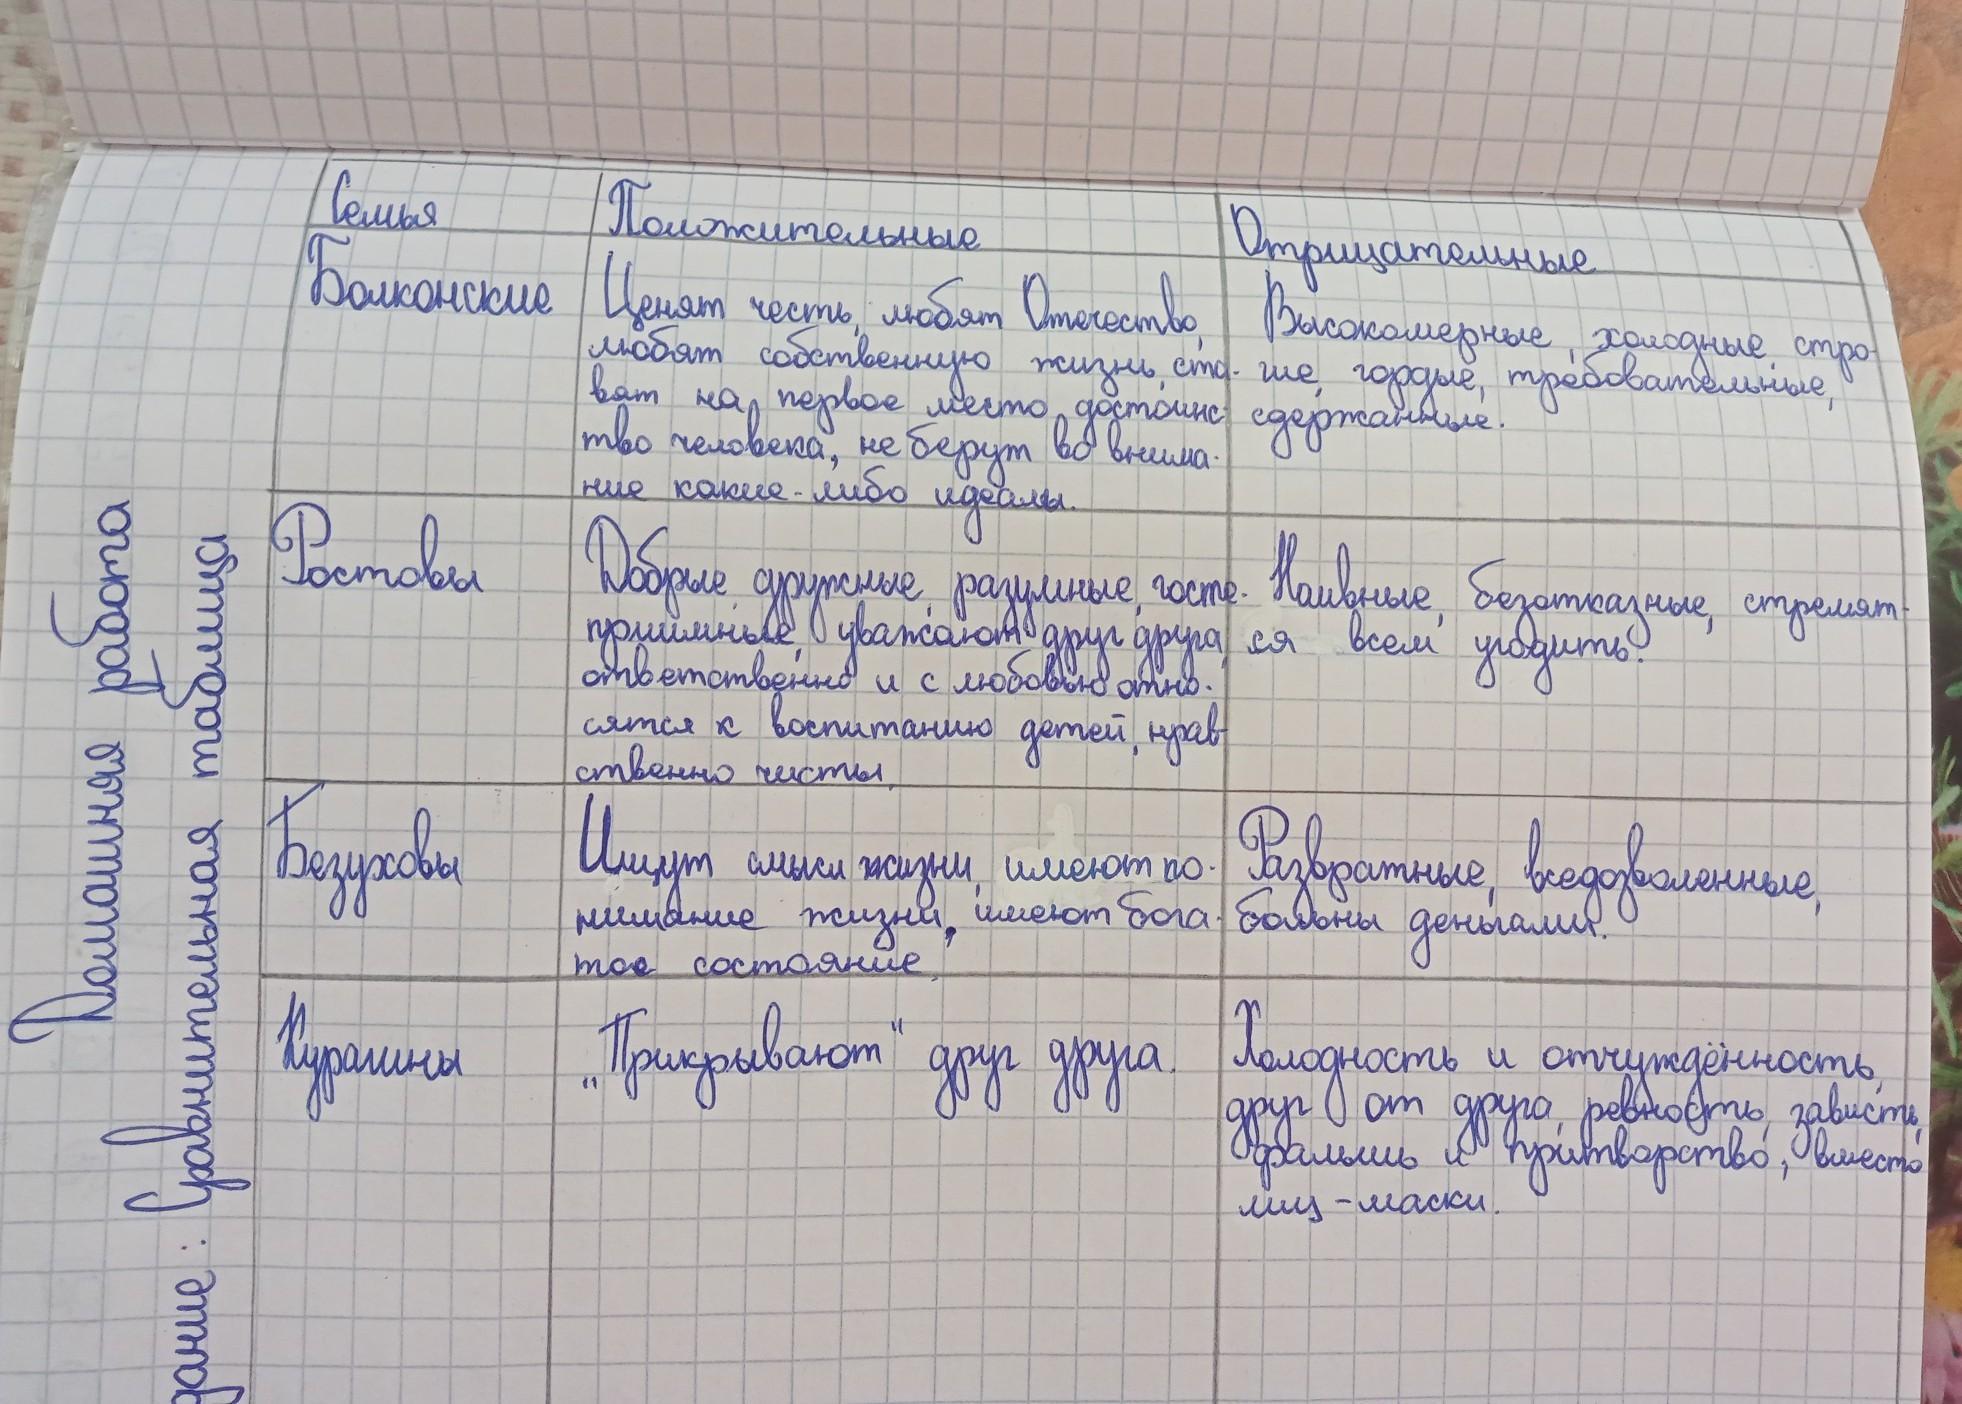 Домашняя работа
дание: Сравнительная таблица
Семья Положительные Отрицательные
Болконские
Ценят честь, любят Отечество,
любят собственную жизнь, ста-
вят на первое место достоинс-
тво человека, не берут во внима-
ние какие-либо идеалы.
Высокомерные, холодные, стро-
гие, гордые, требовательные,
сдержанные.
Ростовы
Добрые, дружные, разумные, госте-
приимные, уважают друг друга,
ответственно и с любовью отно-
сятся к воспитанию детей, нрав-
ственно чисты.
Наивные, безотказные, стремят-
ся всем угодить.
Безуховы
Ищут смысл жизни, имеют по-
нимание жизни, имеют бога-
тое состояние.
Развратные, вседозволенные,
больны деньгами.
Курагины
„Прикрывают" друг друга.
Холодность и отчуждённость
друг от друга, ревность, зависть,
фальшь и притворство, вместо
лиц - маски.